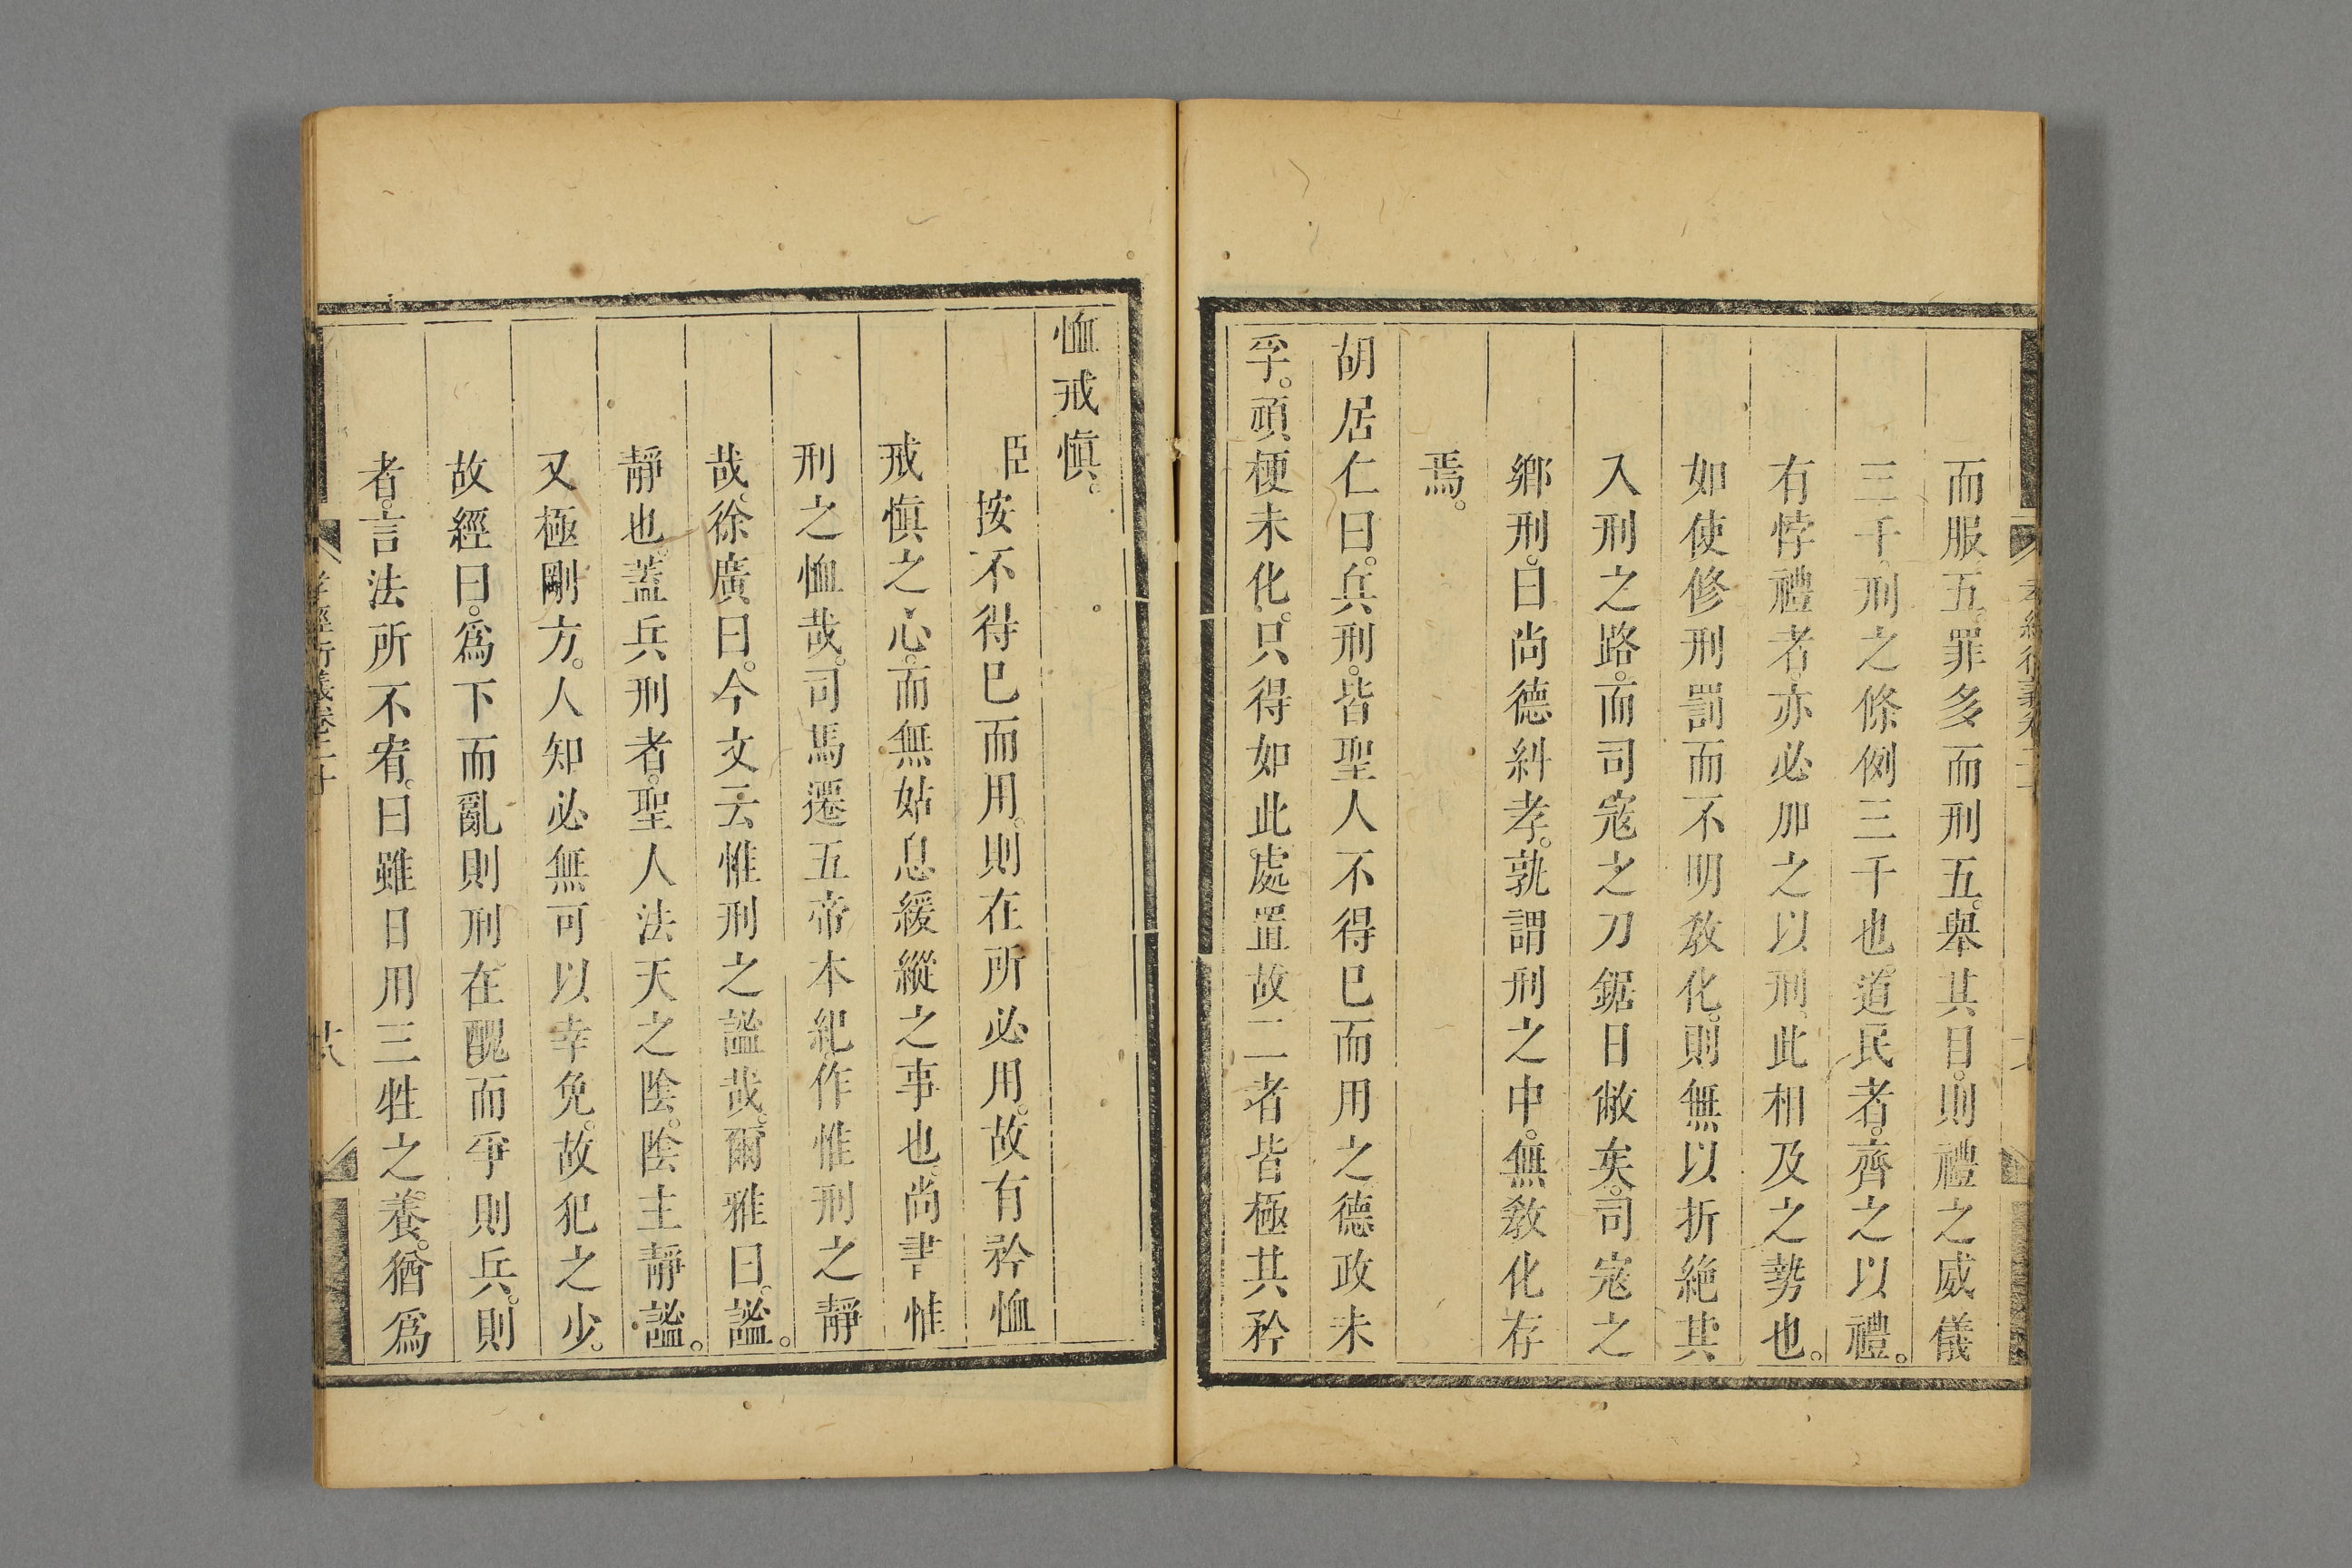 而服五。罪多而刑五。舉其目。則禮之威儀
三千。刑之條例三千也。道民者。齊之以禮。
有悖禮者。亦必加之以刑。此相及之勢也。
如使修刑罰而不明敎化。則無以折絶其
入刑之路。而司寇之刀鋸日敝矣。司寇之
鄉刑。曰尚德糾孝。孰謂刑之中。無敎化存
焉。
胡居仁曰。兵刑。皆聖人不得已而用之德政未
孚。頑梗未化。只得如此處置故二者皆極其矜
恤戒愼。
臣按不得已而用。則在所必用。故有矜恤
戒愼之心。而無姑息緩縱之事也。尚書惟
刑之恤哉。司馬遷五帝本紀。作惟刑之靜
哉。徐廣曰。今文云惟刑之謐哉。爾雅曰。謐。
靜也。蓋兵刑者。聖人法天之陰。陰主靜謐。
又極剛方。人知必無可以幸免。故犯之少。
故經曰。爲下而亂則刑。在醜而爭則兵。則
者。言法所不宥。曰雖日用三牲之養。猶爲
孝經衍義卷二十